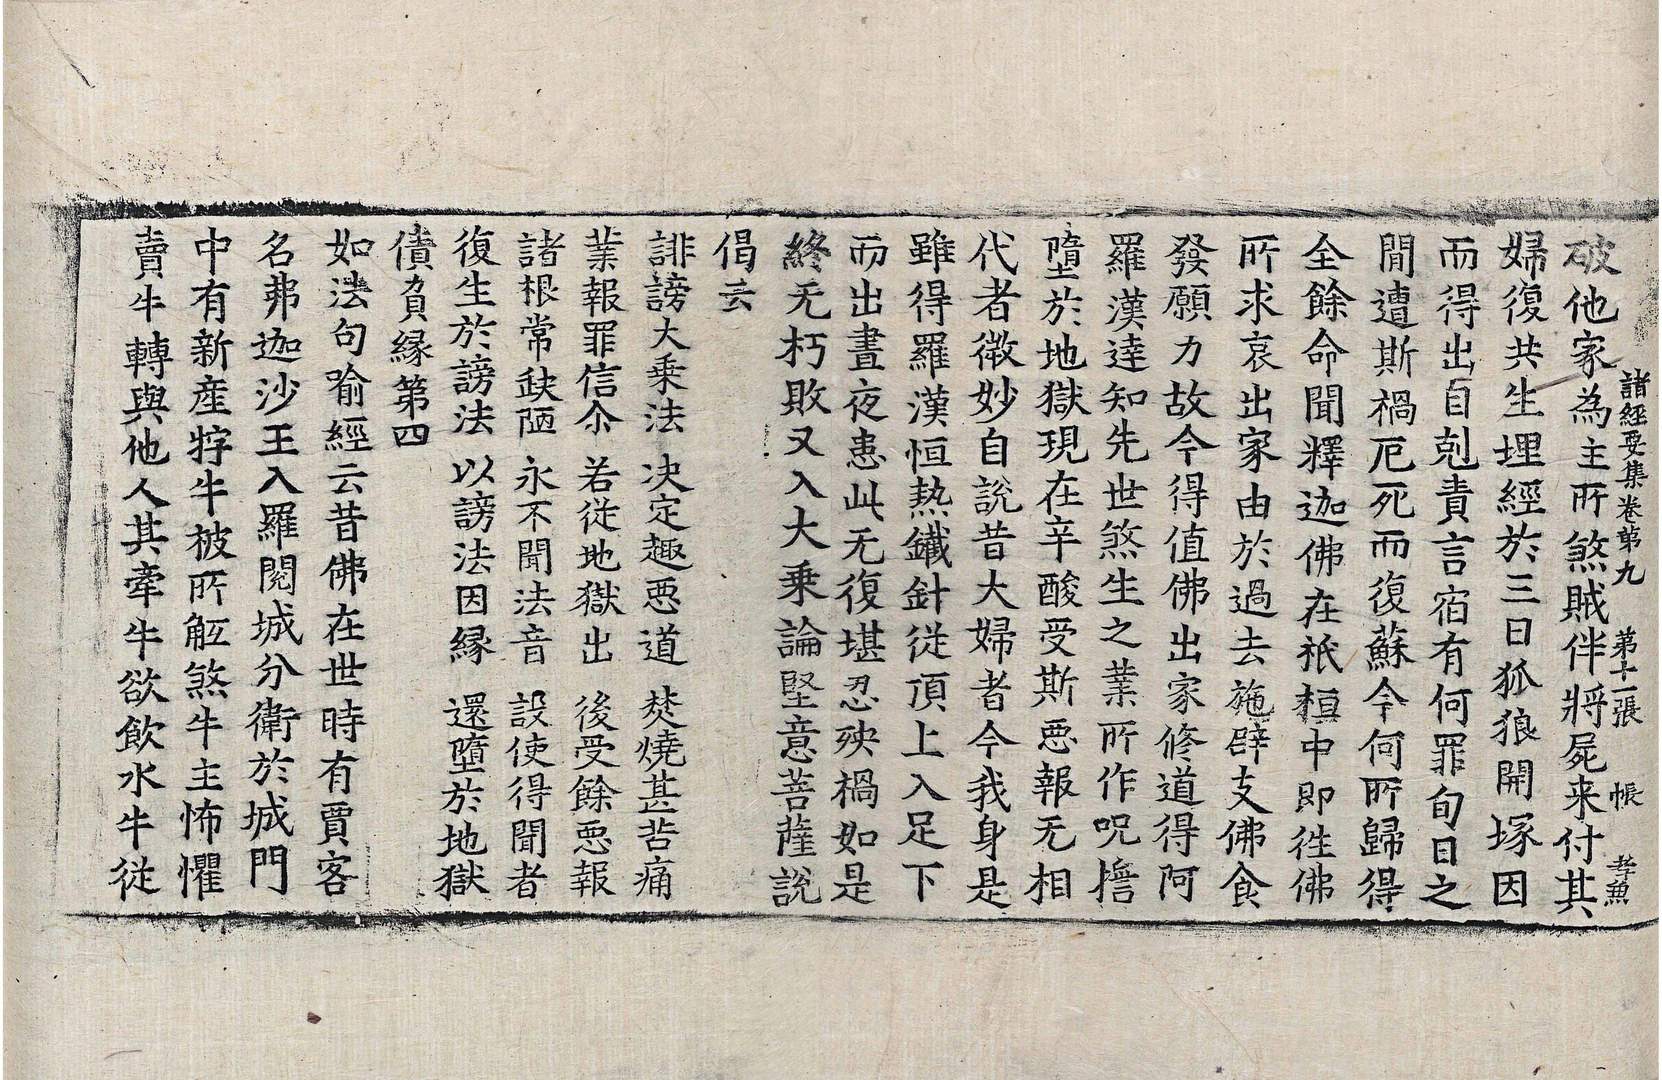 諸經要集卷第九 第十一張 帳 孝兼
破他家為主所煞賊伴將屍来付其
婦復共生埋經於三日狐狼開塚因
而得出自剋責言宿有何罪旬日之
間遭斯禍厄死而復蘇今何所歸得
全餘命聞釋迦佛在祇桓中即徃佛
所求哀出家由於過去施辟支佛食
發願力故今得值佛出家修道得阿
羅漢達知先世煞生之業所作呪擔
墮於地獄現在辛酸受斯惡報无相
代者微妙自說昔大婦者今我身是
雖得羅漢恒熱鐵針從頂上入足下
而出晝夜患此无復堪忍殃禍如是
終无朽敗又入大乗論堅意菩薩說
偈云
誹謗大乗法 决定趣惡道 焚燒甚苦痛
業報罪信尒 若從地獄出 後受餘惡報
諸根常缺陋 永不聞法音 設使得聞者
復生於謗法 以謗法因緣 還墮於地獄
債負緣第四
如法句喻經云昔佛在世時有賈客
名弗迦沙王入羅閱城分衛於城門
中有新產牸牛被所觝煞牛主怖懼
賣牛轉與他人其牽牛欲飲水牛從